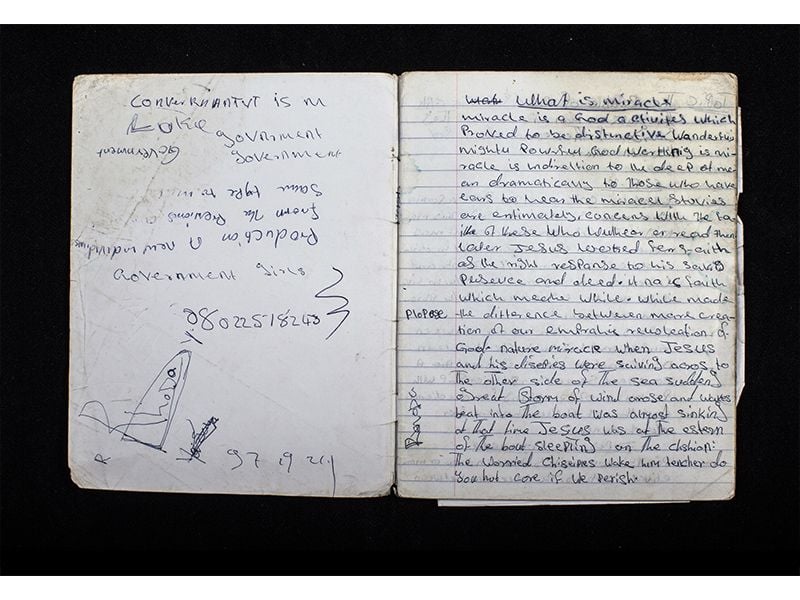 CONVERNMANTVT is m
Luke GOVNMENT
government
Government
same type to
from the Previons
Production of new individuals
Government girls
08022518243
97 19 21
What is miracle
miracle is a God activites which
Proved to be distinctive Wanderful
mighty Powerful God Worthing is mi-
racle is indirettion to the deep of me
an dramaticaly to those who have
ears to hear the miracel Stories
are entimately, concerns with the fa
ith of these Who
later Jesus
as the right response to his saving
Presence and deed. it na is faith
which meche while. while made
Plopose
the difference between more crea-
tion of our
God nature miracle when JESUS
and his disciples were saiving acros to
the other side of the sea suddeng
Great Storm of wind arose and
beat into the boat was almost sinking
at that time JESUS was at the estern
of the boat sleepling on the Cushion:
The Worried wake him teacher do
you not care if we perish.